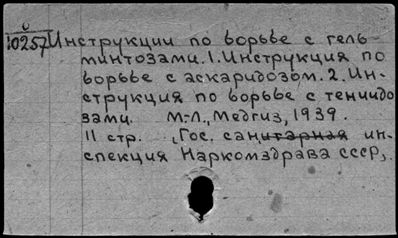 0
10257 Инструкции по борьбе с гель
минтозами. 1. Инструкция по
борьбе с аскаридозом. 2. Ин-
струкция по борьбе с тениидо
зами. М.-Л., Медгиз, 1939.
11 стр. „Гос. санитарная ин-
спекция Наркомздрава СССР„.